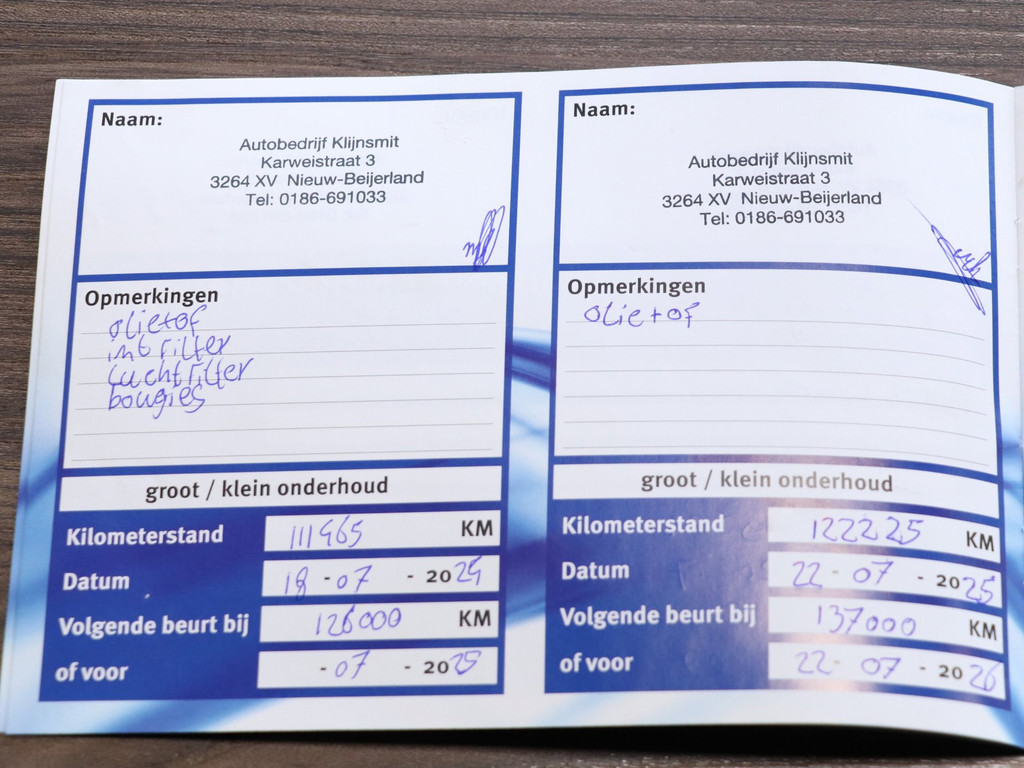 Naam:
Autobedrijf Klijnsmit
Karweistraat 3
3264 XV Nieuw-Beijerland
Tel: 0186-691033
Opmerkingen
olie+of
int filter
luchtfilter
bougies
groot / klein onderhoud
Kilometerstand 111465 KM
Datum 18 - 07 - 2024
Volgende beurt bij 126000 KM
of voor - 07 - 2025
Naam:
Autobedrijf Klijnsmit
Karweistraat 3
3264 XV Nieuw-Beijerland
Tel: 0186-691033
Opmerkingen
olie+of
groot / klein onderhoud
Kilometerstand 122225 KM
Datum 22 - 07 - 2025
Volgende beurt bij 137000 KM
of voor 22 - 07 - 2026